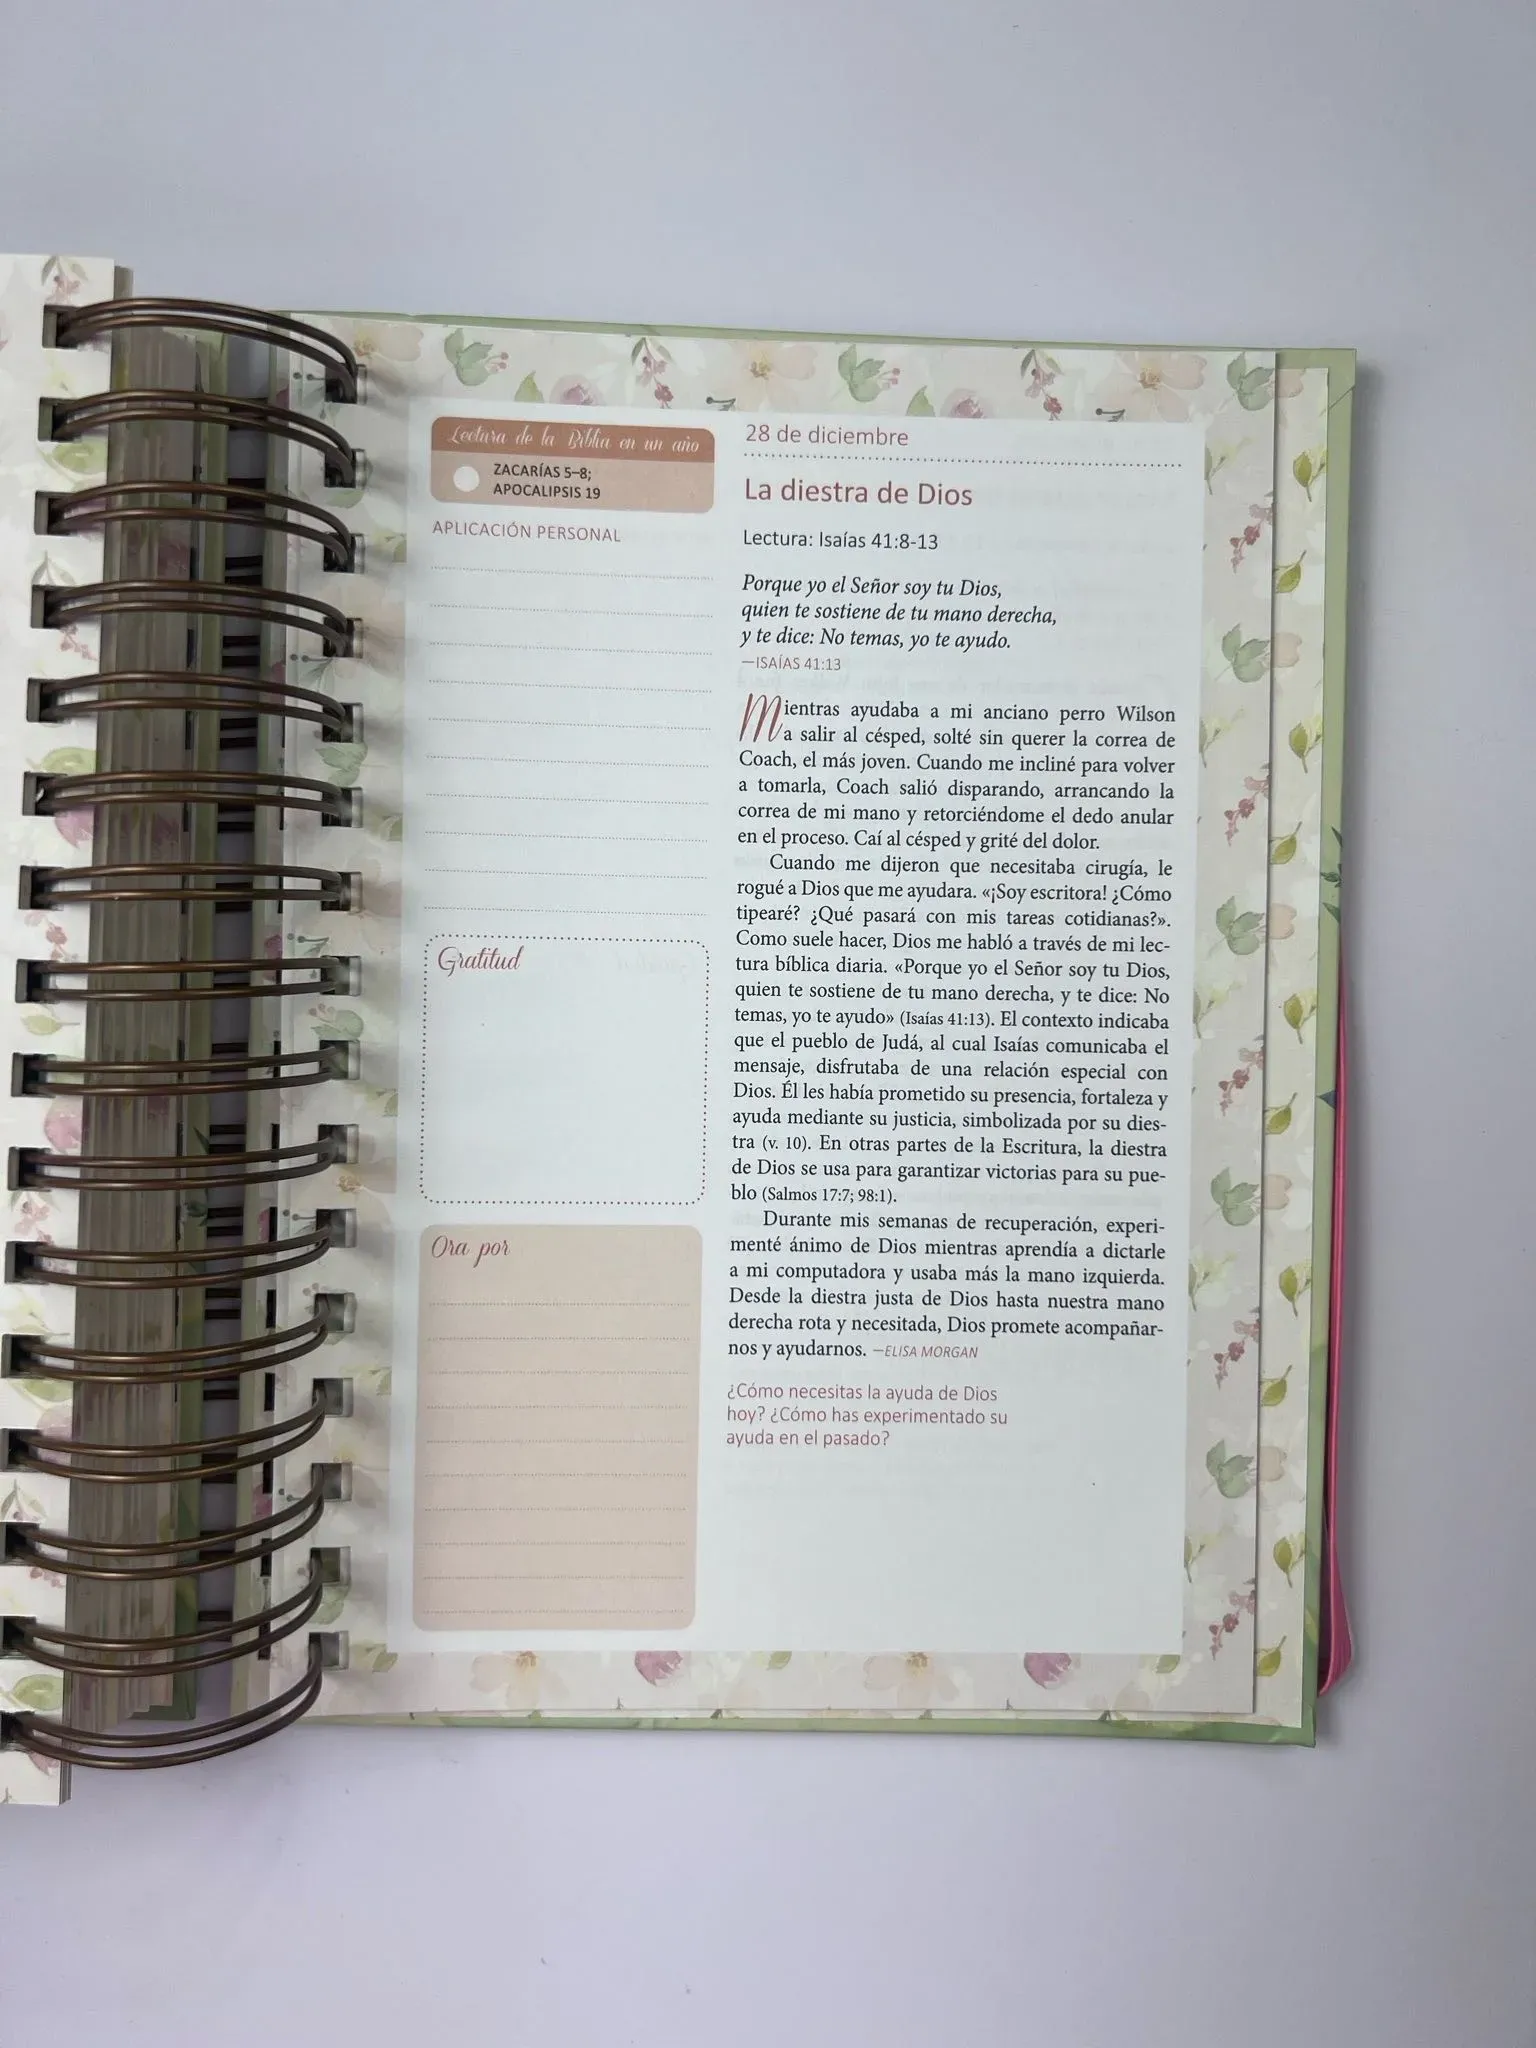 Lectura de la Biblia en un año
ZACARÍAS 5–8;
APOCALIPSIS 19
APLICACIÓN PERSONAL
Gratitud
Ora por
28 de diciembre
La diestra de Dios
Lectura: Isaías 41:8-13
Porque yo el Señor soy tu Dios,
quien te sostiene de tu mano derecha,
y te dice: No temas, yo te ayudo.
—ISAÍAS 41:13
Mientras ayudaba a mi anciano perro Wilson
a salir al césped, solté sin querer la correa de
Coach, el más joven. Cuando me incliné para volver
a tomarla, Coach salió disparando, arrancando la
correa de mi mano y retorciéndome el dedo anular
en el proceso. Caí al césped y grité del dolor.
Cuando me dijeron que necesitaba cirugía, le
rogué a Dios que me ayudara. «¡Soy escritora! ¿Cómo
tipearé? ¿Qué pasará con mis tareas cotidianas?».
Como suele hacer, Dios me habló a través de mi lec-
tura bíblica diaria. «Porque yo el Señor soy tu Dios,
quien te sostiene de tu mano derecha, y te dice: No
temas, yo te ayudo» (Isaías 41:13). El contexto indicaba
que el pueblo de Judá, al cual Isaías comunicaba el
mensaje, disfrutaba de una relación especial con
Dios. Él les había prometido su presencia, fortaleza y
ayuda mediante su justicia, simbolizada por su dies-
tra (v. 10). En otras partes de la Escritura, la diestra
de Dios se usa para garantizar victorias para su pue-
blo (Salmos 17:7; 98:1).
Durante mis semanas de recuperación, experi-
menté ánimo de Dios mientras aprendía a dictarle
a mi computadora y usaba más la mano izquierda.
Desde la diestra justa de Dios hasta nuestra mano
derecha rota y necesitada, Dios promete acompañar-
nos y ayudarnos. —ELISA MORGAN
¿Cómo necesitas la ayuda de Dios
hoy? ¿Cómo has experimentado su
ayuda en el pasado?